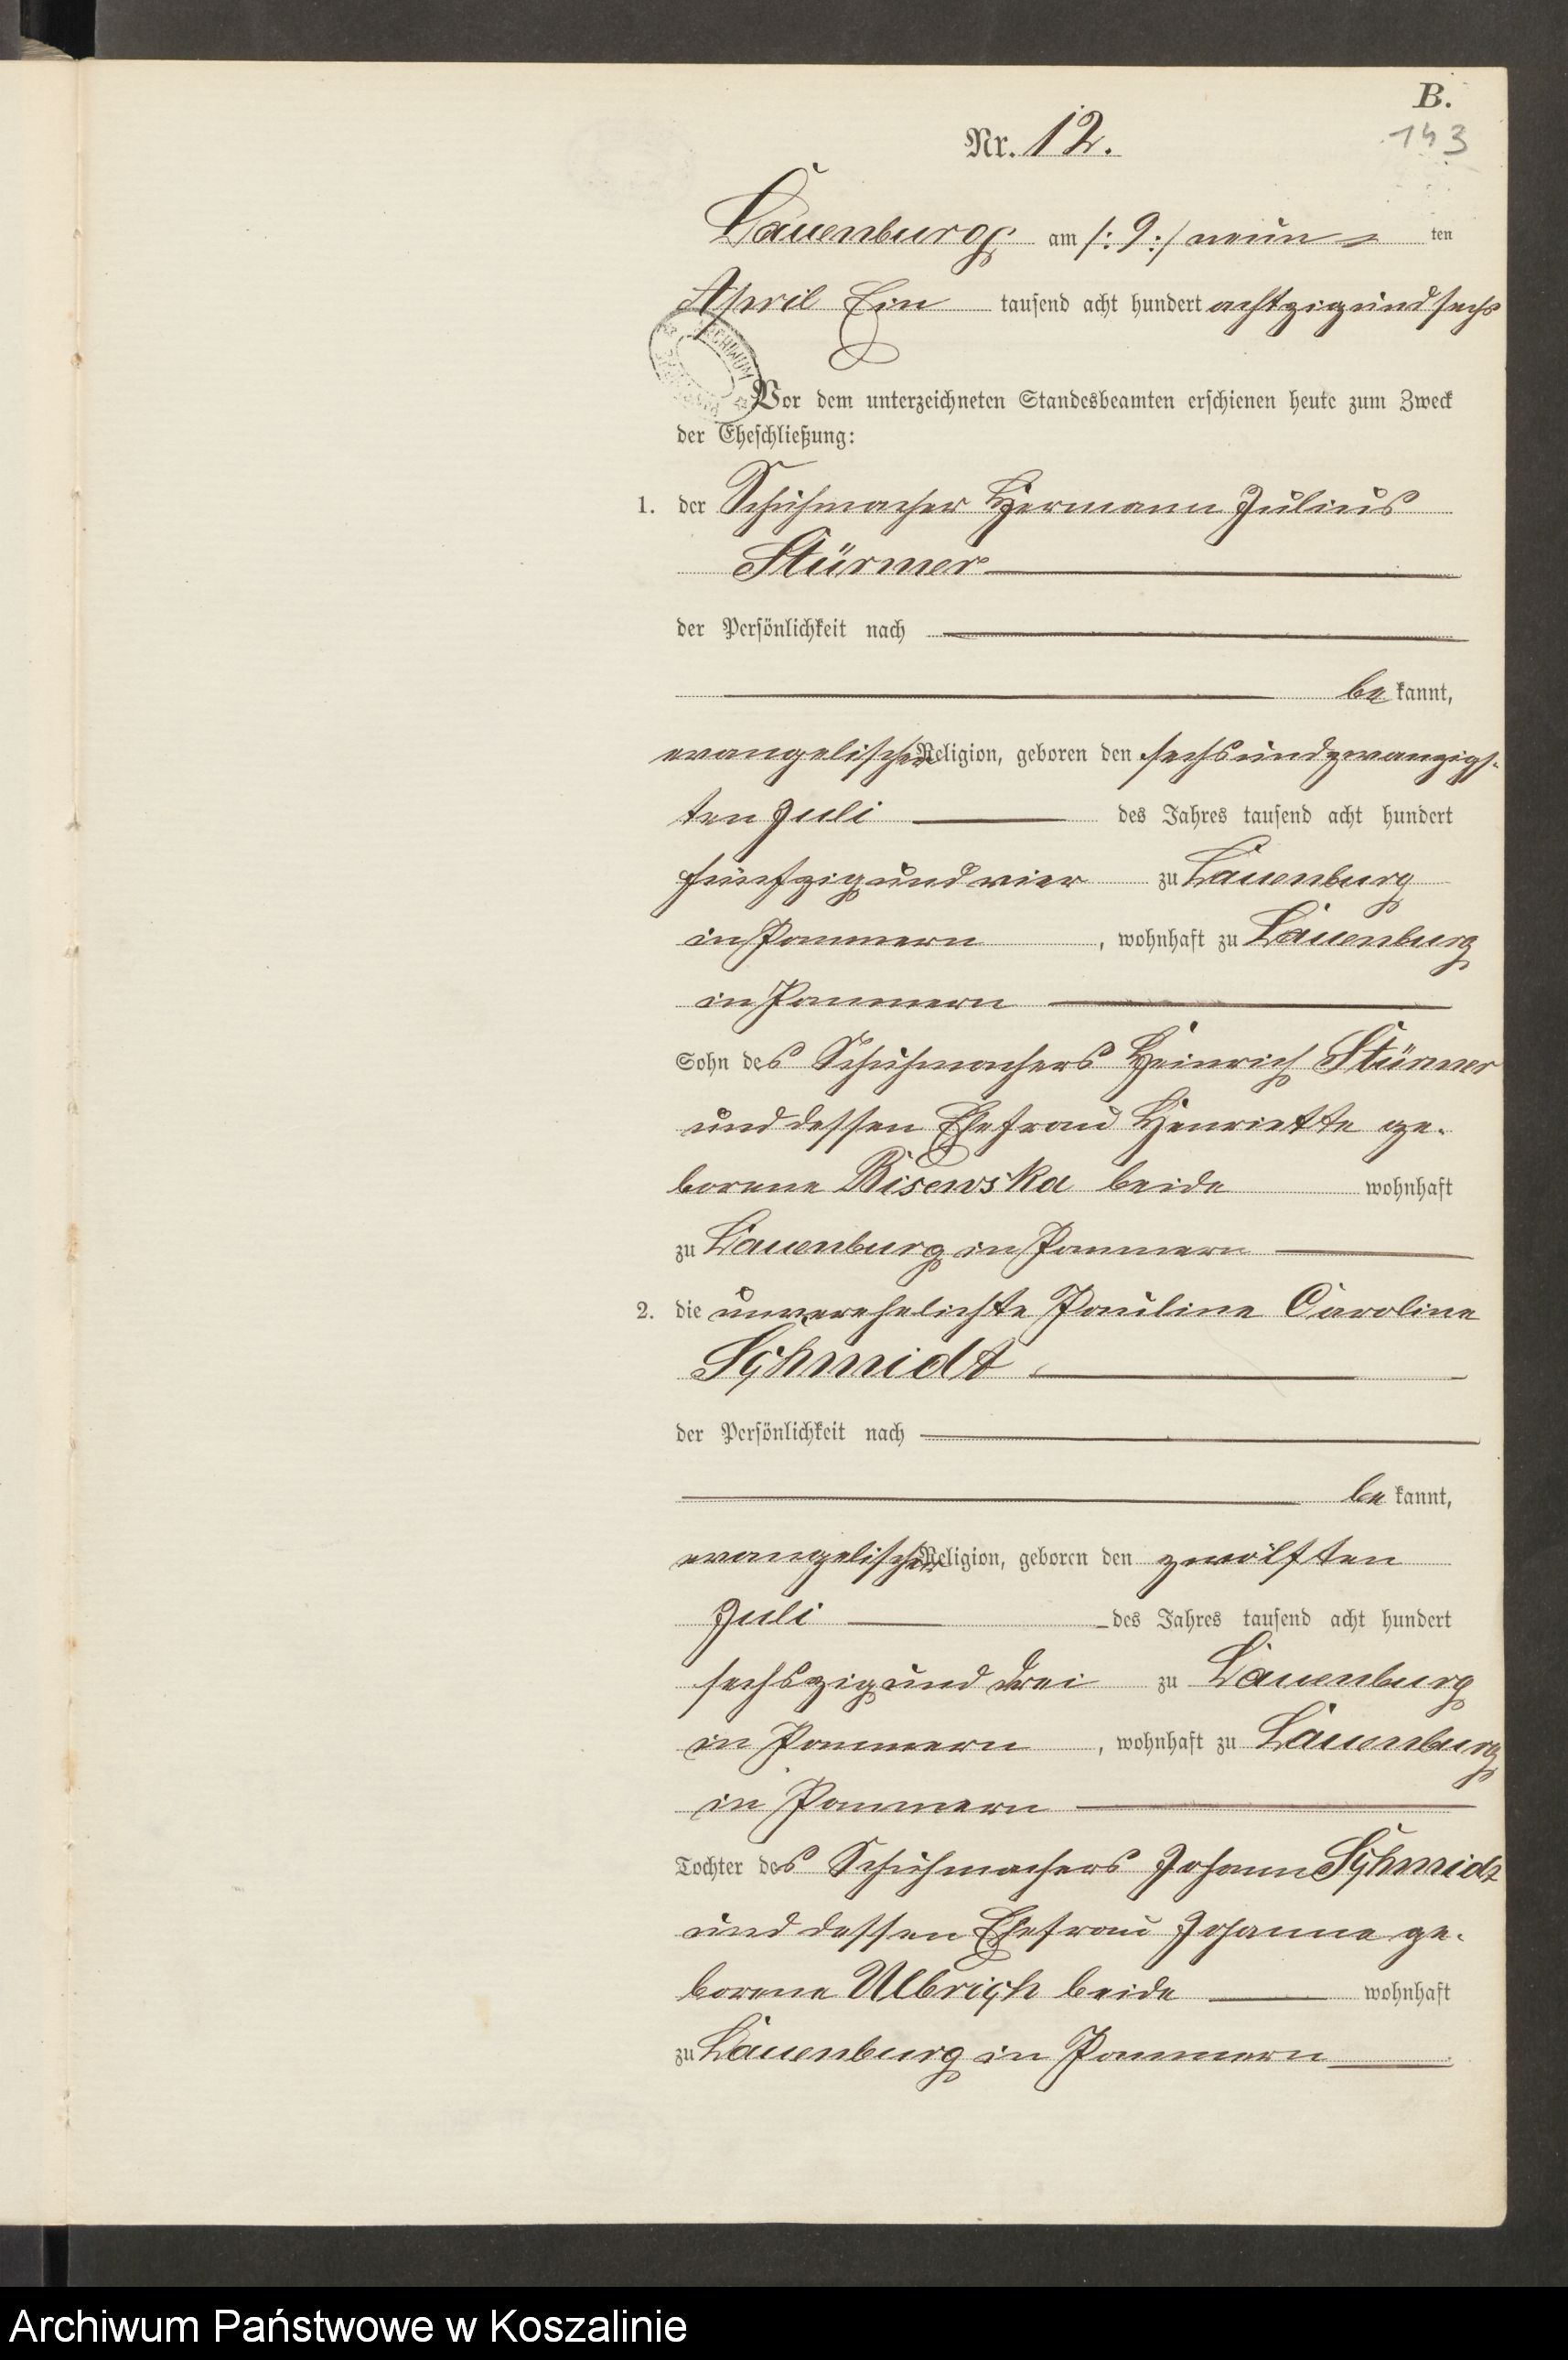 B.
143
Nr. 12.
Lauenburg am /: 9 :/ neun ten
April Ein tausend acht hundert achtzig und sechs
ARCHIWUM
Vor dem unterzeichneten Standesbeamten erschienen heute zum Zweck
der Eheschließung:
1. der Schuhmacher Hermann Julius
Stürmer
der Persönlichkeit nach
be kannt,
evangelischer Religion, geboren den sechsundzwanzigs-
ten Juli des Jahres tausend acht hundert
fünfzig und vier zu Lauenburg
in Pommern, wohnhaft zu Lauenburg
in Pommern
Sohn des Schuhmachers Heinrich Stürmer
und dessen Ehefrau Henriette ge-
borene Bisewska beide wohnhaft
zu Lauenburg in Pommern
2. die unverehelichte Pauline Caroline
Schmidt
der Persönlichkeit nach
be kannt,
evangelischer Religion, geboren den zwölften
Juli des Jahres tausend acht hundert
sechszig und drei zu Lauenburg
in Pommern, wohnhaft zu Lauenburg
in Pommern
Tochter des Schuhmachers Johann Schmidt
und dessen Ehefrau Johanna ge-
borene Ulbrich beide wohnhaft
zu Lauenburg in Pommern
Archiwum Państwowe w Koszalinie